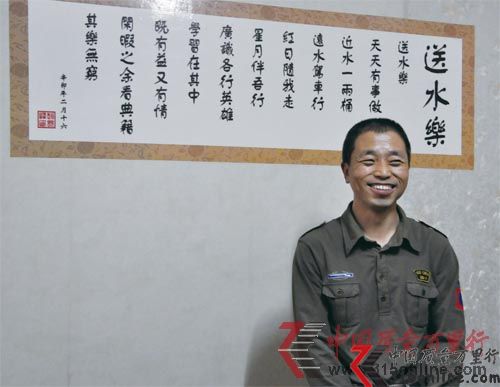 送水樂
送水樂
天天有事做
近水一兩桶
遠水駕車行
紅日隨我走
星月伴吾行
廣識各行英雄
學習在其中
既有益又有情
閑暇之余看典籍
其樂無窮
辛卯年二月十六
中国风台万里行
中国风台万里行
www.115online.com